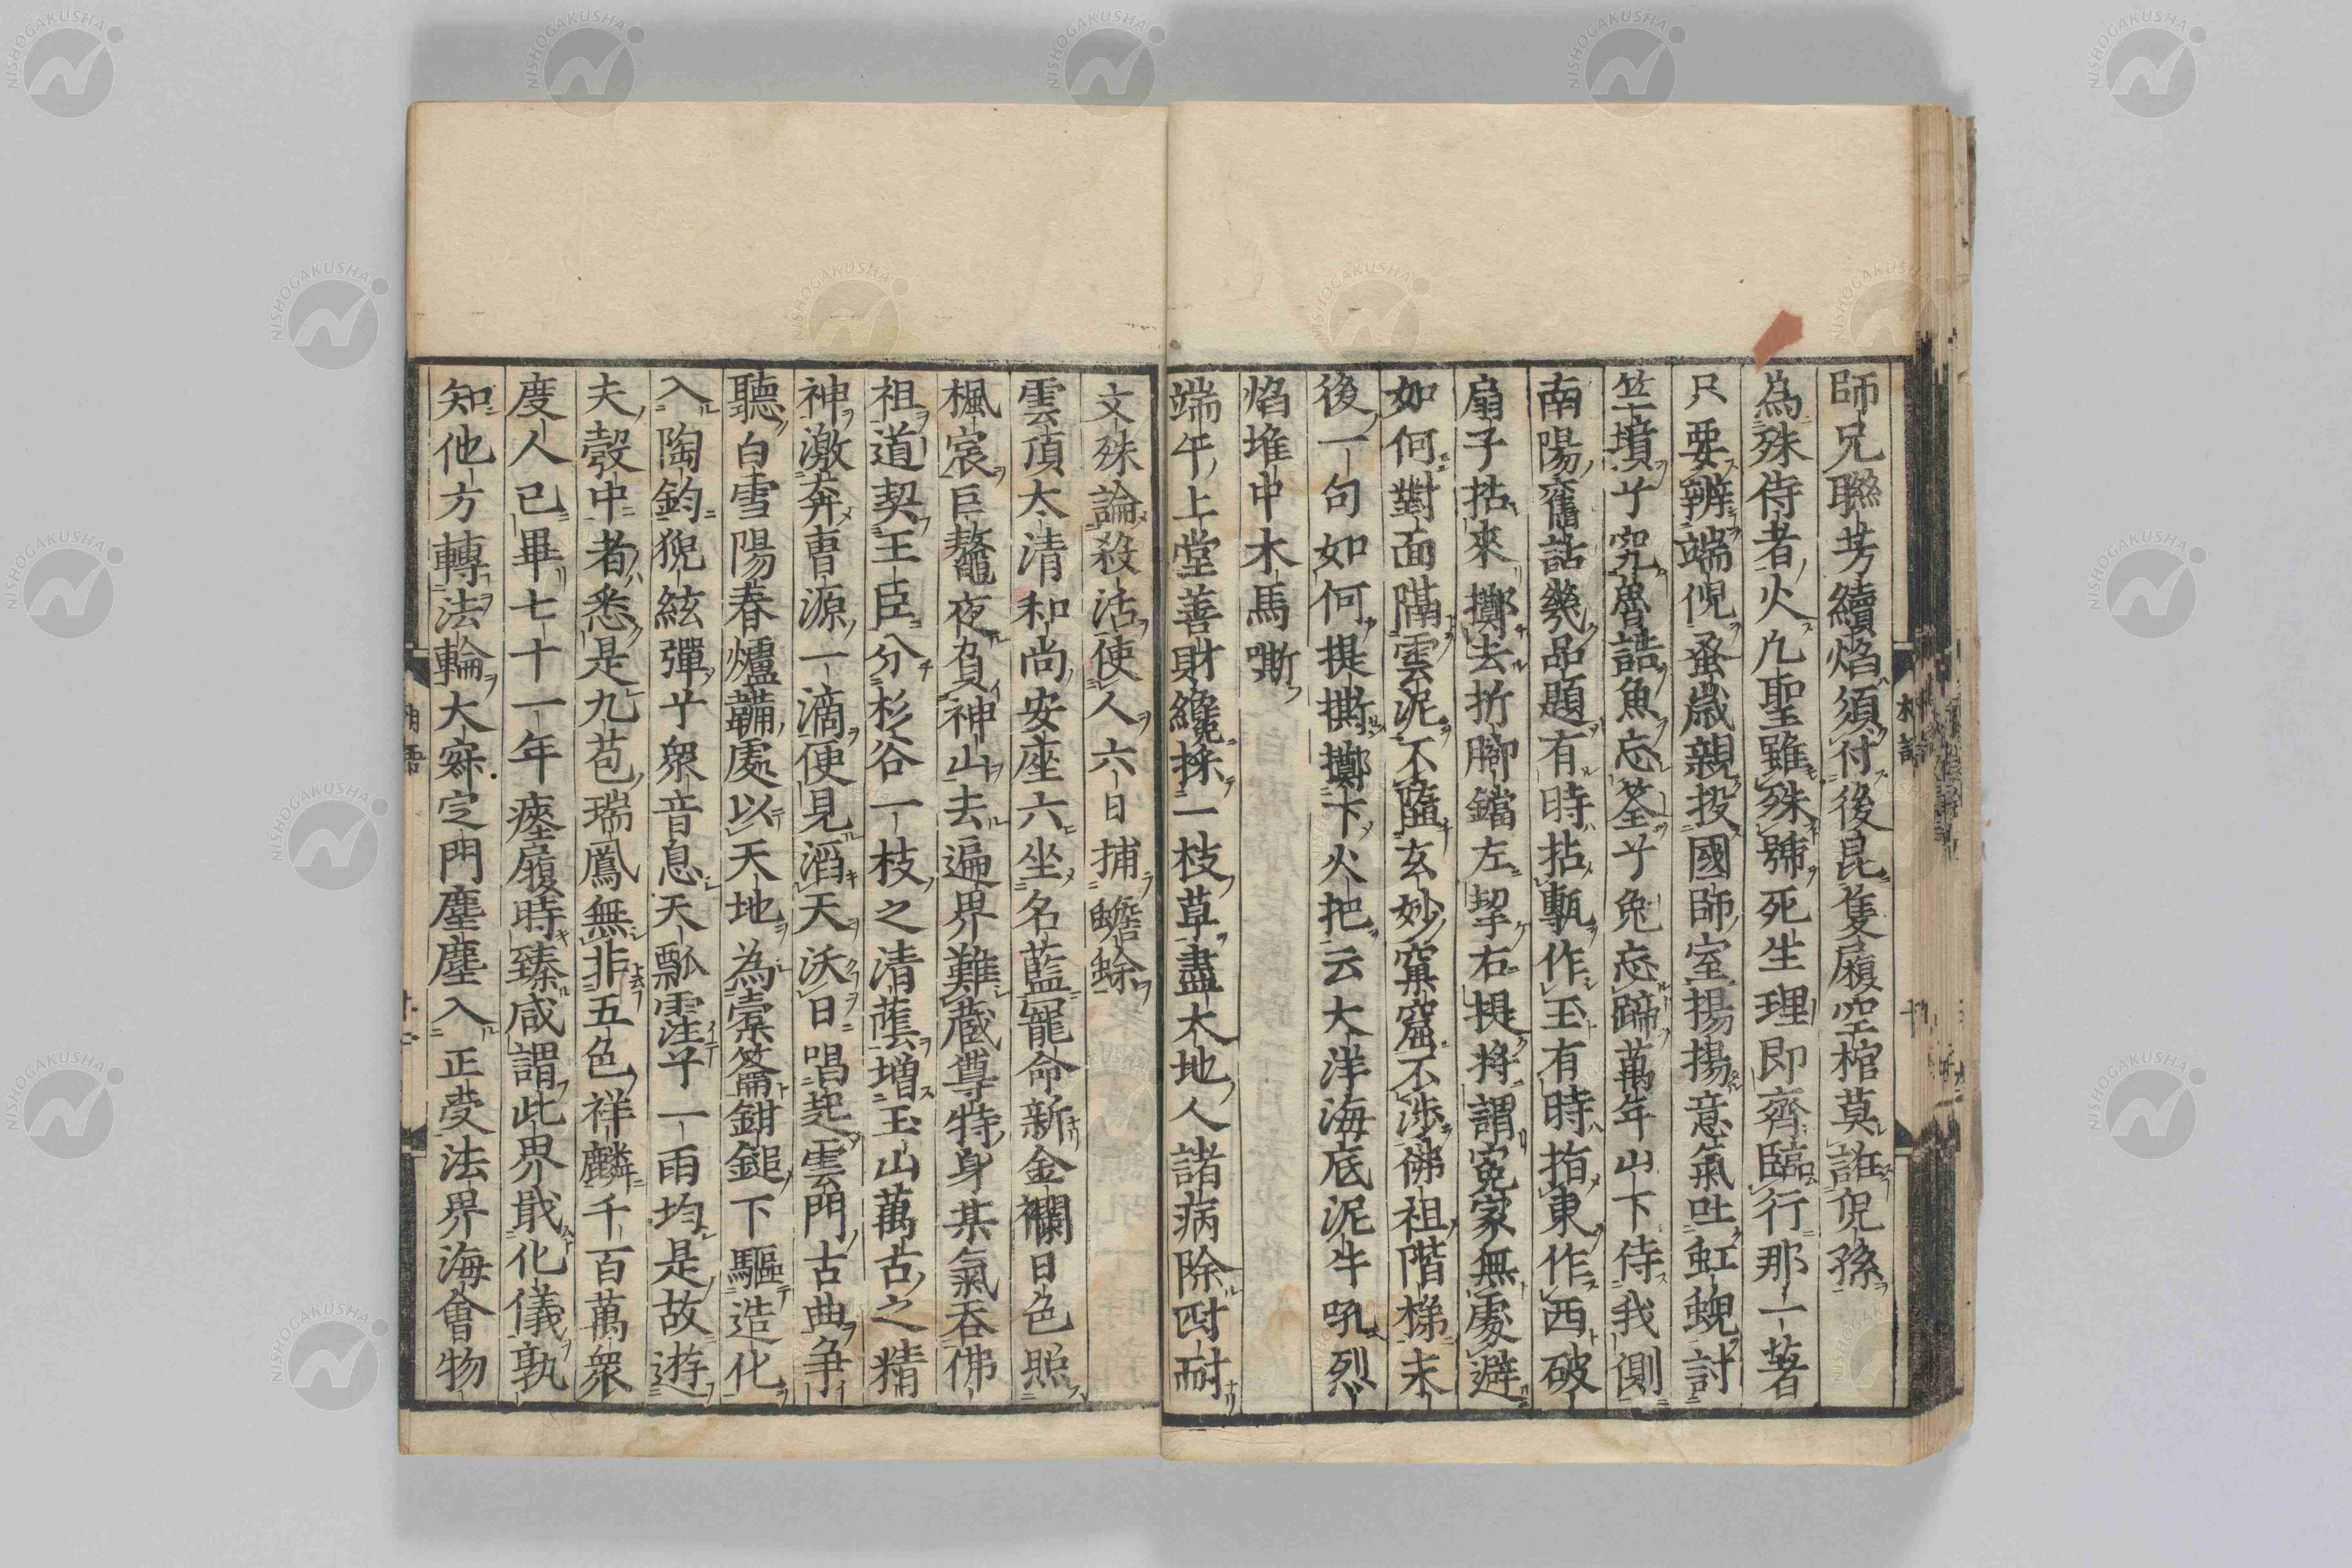 師兄聯芳續焰須付後昆隻履空棺莫誑兒孫
為殊侍者火凡聖雖殊號死生理即齊臨行那一著
只要辨端倪蚤歲親投國師室揚揚意氣吐虹蜺討
竺墳乎究魯誥魚忘筌乎兔忘蹄萬年山下侍我側
南陽舊話幾品題有時拈甎作玉有時指東作西破
扇子拈來擲去折脚鐺左挈右提將謂冤家無處避
如何對面隔雲泥不墮玄妙窠窟不涉佛祖階梯末
後一句如何提撕擲下火把云大洋海底泥牛吼烈
焰堆中木馬嘶
端午上堂善財纔採一枝草盡大地人諸病除尀耐
文殊論殺活使人六日捕蟾蜍
雲頂太清和尚安座六坐名藍寵命新金襴日色照
楓宸巨鼇夜負神山去遍界難藏尊特身某氣吞佛
祖道契王臣分杉谷一枝之清蔭增玉山萬古之精
神激奔曹源一滴便見滔天沃日唱起雲門古曲爭
聽白雪陽春爐韛處以天地為橐籥鉗鎚下驅造化
入陶鈞猊絃彈乎眾音息天瓢霔乎一雨均是故遊
夫彀中者悉是九苞瑞鳳無非五色祥麟千百萬眾
度人已畢七十一年瘞履時臻咸謂此界戢化儀孰
知他方轉法輪大寂定門塵塵入正受法界海會物